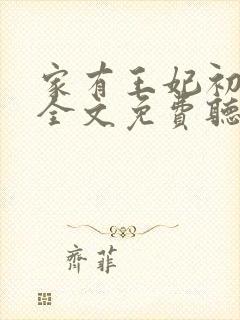 家有王妃初
全文免費聽
齊菲